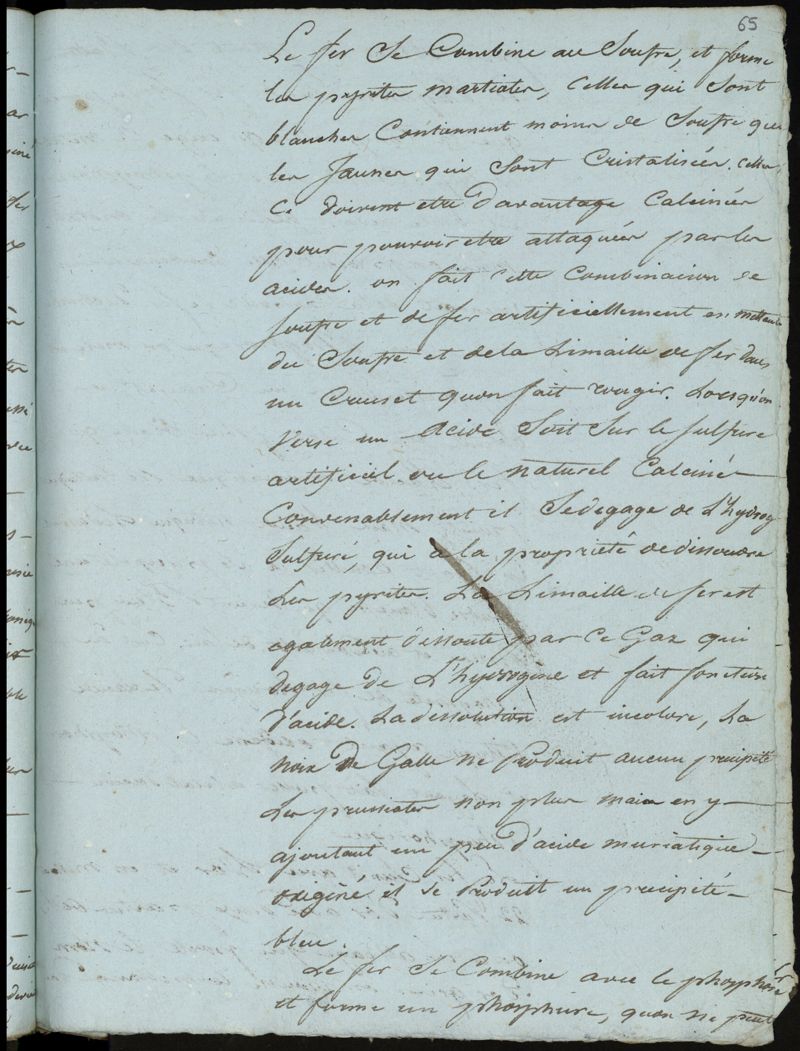 65
Le fer se Combine au Soufre, et forme
les pyrites martiales, Celles qui sont
blanches Contiennent moins de Soufre que
les Jaunes qui sont Cristalisées. Celles
Ci doivent etre davantage Calcinées
pour pouvoir etre attaquées par les
acides. on fait cette Combinaison de
soufre et de fer artificiellement en mettant
du Soufre et de la Limaille de fer dans
un Creuset quon fait rougir. Lorsqu'on
verse un Acide Soit Sur le sulfure
artificiel ou le naturel Calciné
Convenablement il se degage de L'hydrog
Sulfuré, qui a la propriété de dissoudre
Les pyrites. La Limaille de fer est
egalement dissoute par Ce Gaz qui
degage de L'hydrogène et fait fonction
d'acide. La dissolution est incolore, La
noix De Galle ne Produit aucun precipité
Les prussiates non plus mais en y
ajoutant un peu d'acide muriatique
oxigèné il se Produit un precipité
bleu.
Le fer se Combine avec le phosphore
et forme un phosphure, quon ne peut